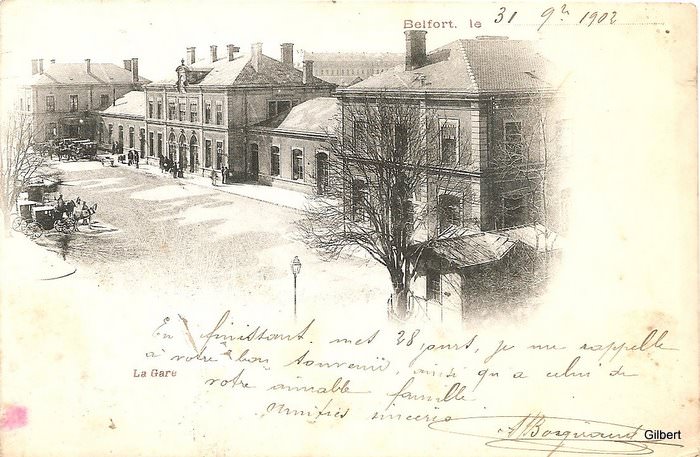 Belfort. le 31 9re 1902
En finissant met 28 jours, je me rappelle
à votre bon souvenir, ainsi qu'a celui de
La Gare
votre aimable famille
Amitiés sincères
Gilbert